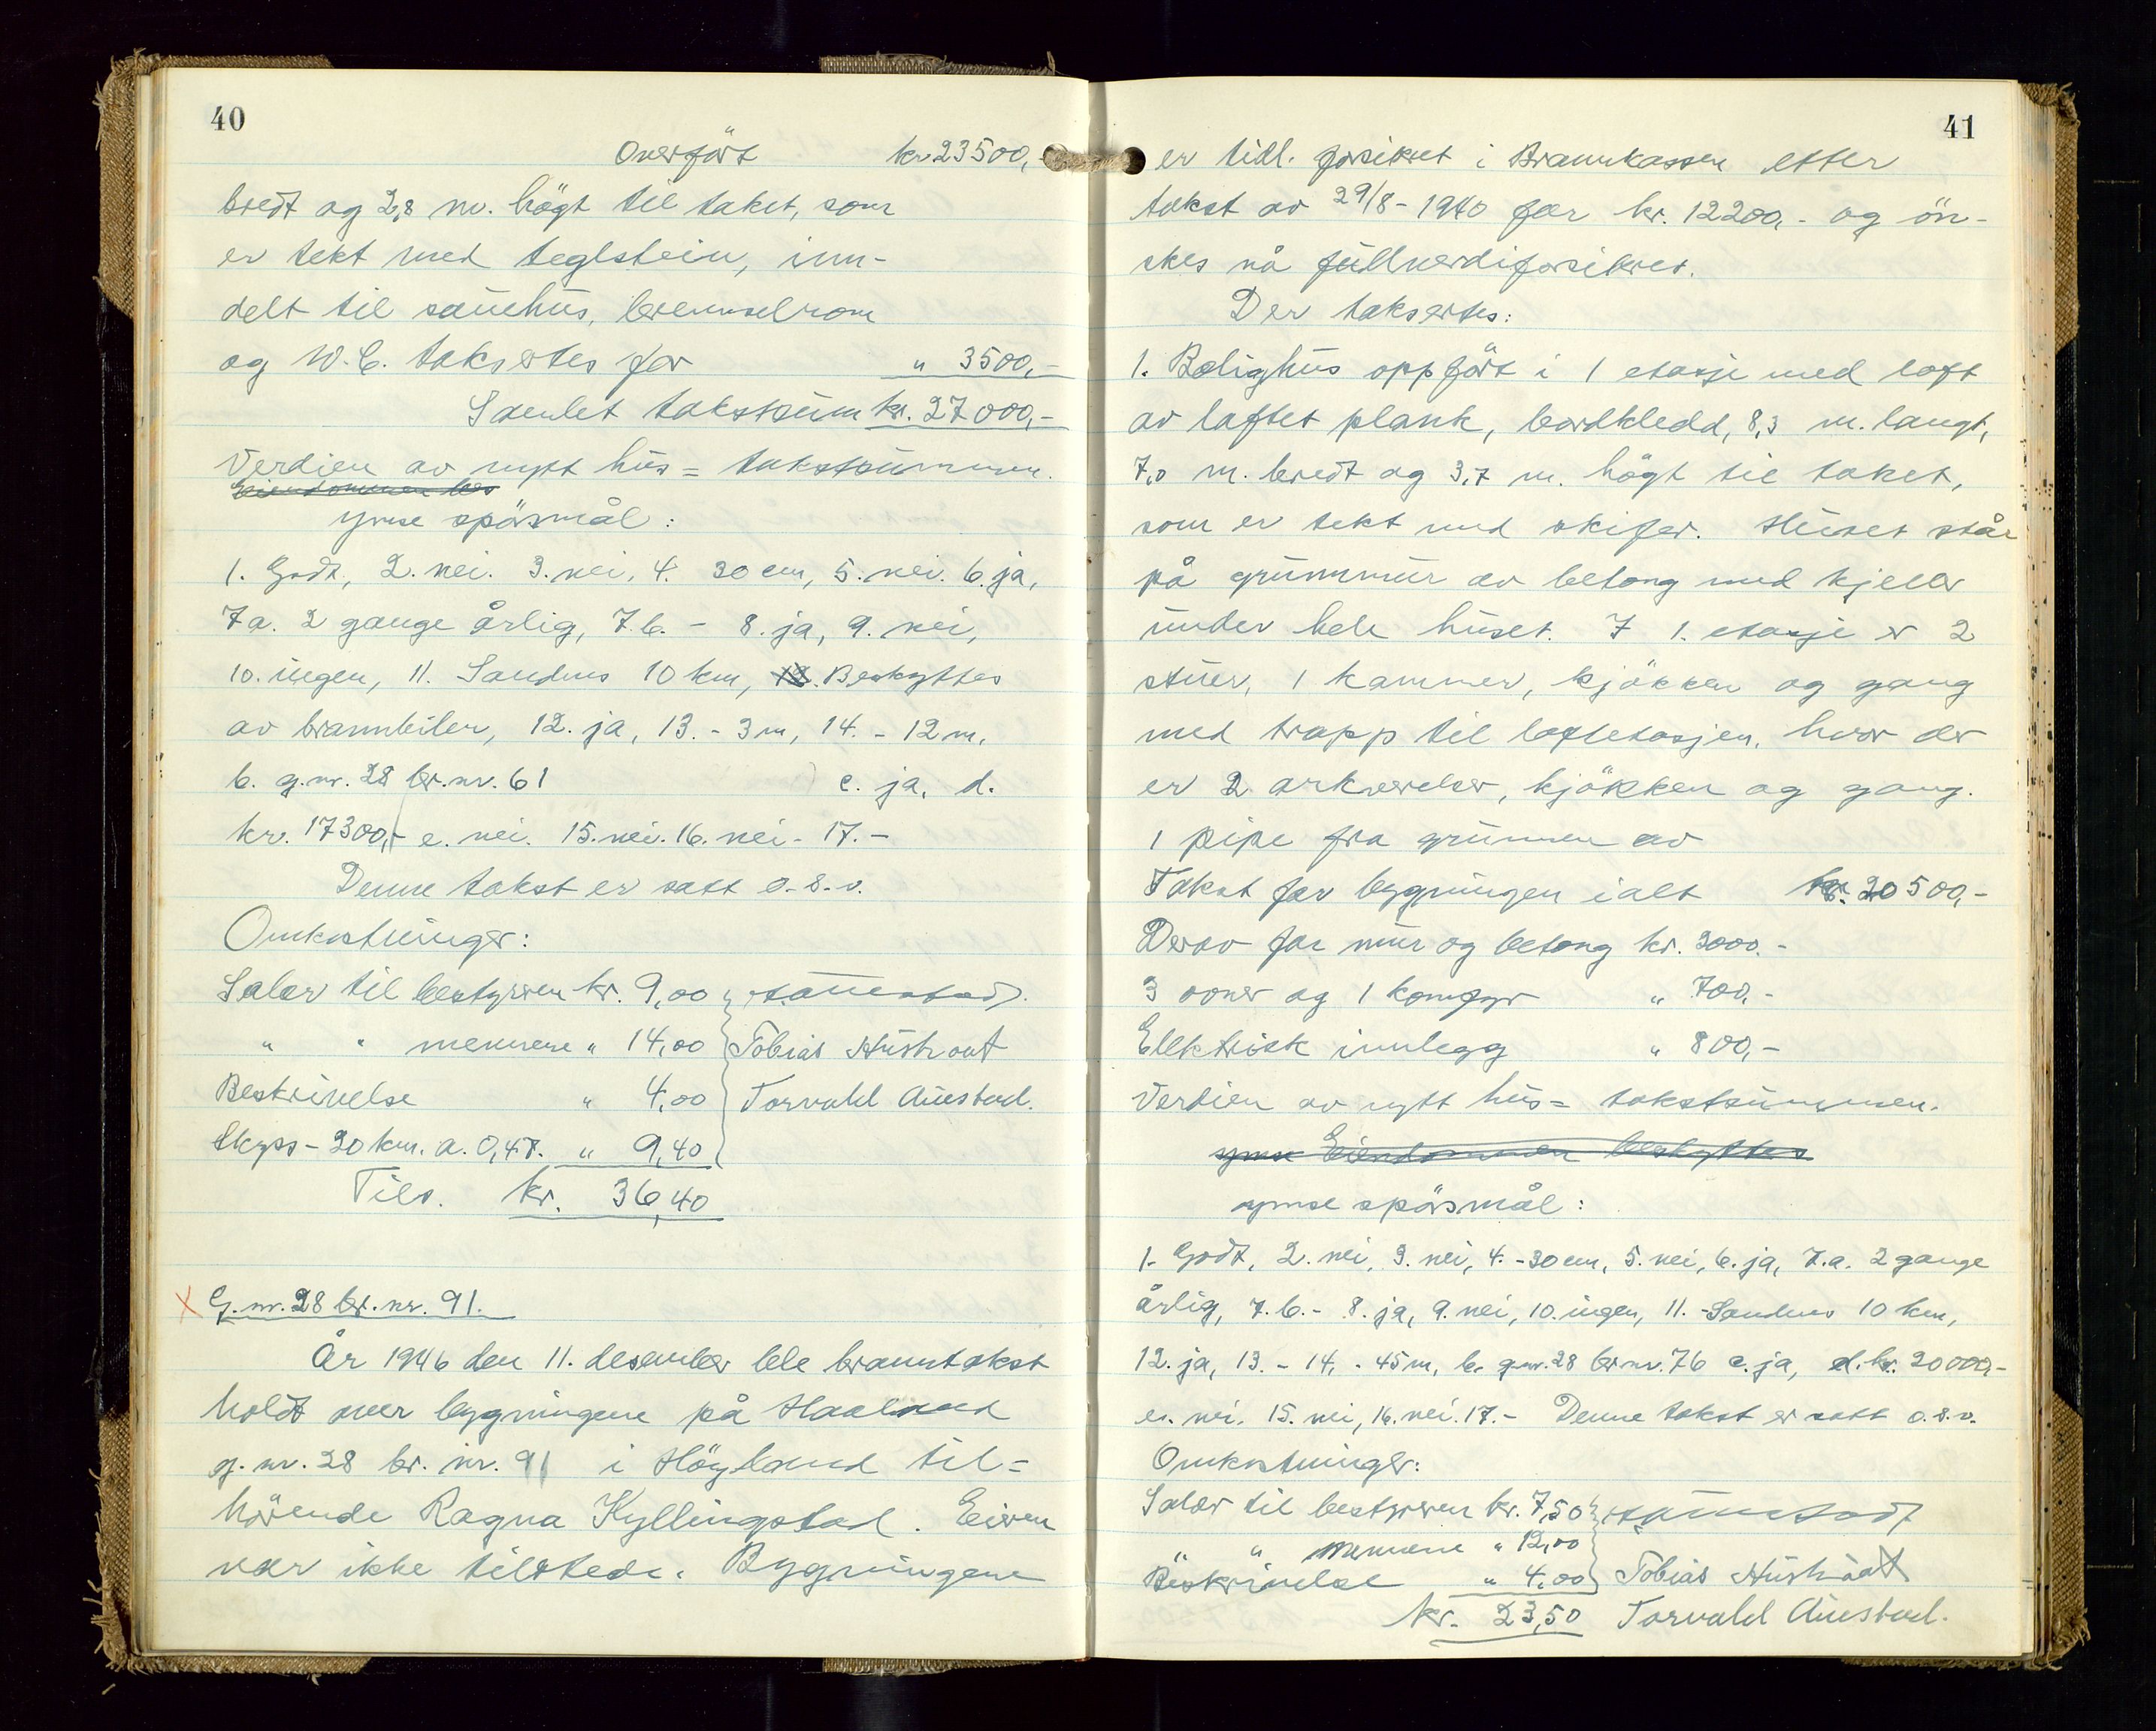 40
Overført kr. 23500,-
bredt og 2,8 m. högt til taket, som
er tekt med teglstein, inn-
delt til sauehus, brenselrom
og W.C. taksertes for " 3500,-
Samlet takstsum kr. 27000,-
Verdien av nytt hus = takstsummen.
Eiendommen bes
ymse spörsmål:
1. Godt, 2. nei. 3. nei, 4. 30 cm, 5. nei. 6. ja,
7a. 2 gange årlig, 7.b. - 8. ja, 9. nei,
10. ingen, 11. Sandnes 10 km, 12. Beskyttes
av brannbiler, 12. ja, 13. - 3 m, 14. - 12 m.
b. g.nr. 28 br.nr. 61 c. ja, d.
kr. 17300,- e. nei. 15. nei. 16. nei - 17. -
Denne takst er satt o.s.v.
Omkostninger:
Salær til bestyreren kr. 9,00
" " mennene " 14,00 Tobias Hustroat
Beskrivelse " 4,00 Torvald Austad.
Skyss - 20 km. a. 0,47. " 9,40
Tils. kr. 36,40
X G.nr. 28 br.nr. 91.
År 1946 den 11. desember ble branntakst
holdt over bygningene på Haaland
g.nr. 28 br.nr. 91 i Höyland til=
hörende Ragna Kyllingstad. Eieren
var ikke tilstede. Bygningene
41
er tidl. forsikret i Brannkassen etter
takst av 29/8 - 1940 for kr. 12200,- og ön-
skes nå fullverdiforsikret.
Der taksertes:
1. Bolighus oppfört i 1 etasje med loft
av laftet plank, bordkledd, 8,3 m. langt,
7,0 m. bredt og 3,7 m. högt til taket,
som er tekt med skifer. Huset står
på grunnmur av betong med kjeller
under hele huset. I 1. etasje er 2
stuer, 1 kammer, kjökken og gang
med trapp til loftetasjen, hvor der
er 2 arkværelser, kjökken og gang.
1 pipe fra grunnen av
Takst for bygningen ialt kr. 20500,-
Derav for mur og betong kr. 3000.-
3 ovner og 1 komfyr " 700,-
Elektrisk innlegg " 800,-
Verdien av nytt hus = takstsummen.
ymse Eiendommen beskyttes
ymse spörsmål:
1. Godt, 2. nei, 3. nei, 4. - 30 cm, 5. nei, 6. ja, 7.a. 2 gange
årlig, 7.b. - 8. ja, 9. nei, 10. ingen, 11. - Sandnes 10 km,
12. ja, 13. - 14. - 45 m, b. g.nr. 28 br.nr. 76 c. ja, d. kr. 20000,-
e. nei. 15. nei, 16. nei. 17. - Denne takst er satt o.s.v.
Omkostninger:
Salær til bestyreren kr. 7,50
" " mennene " 12,00
Beskrivelse " 4,00 Tobias Hustroat
kr. 23,50 Torvald Austad.